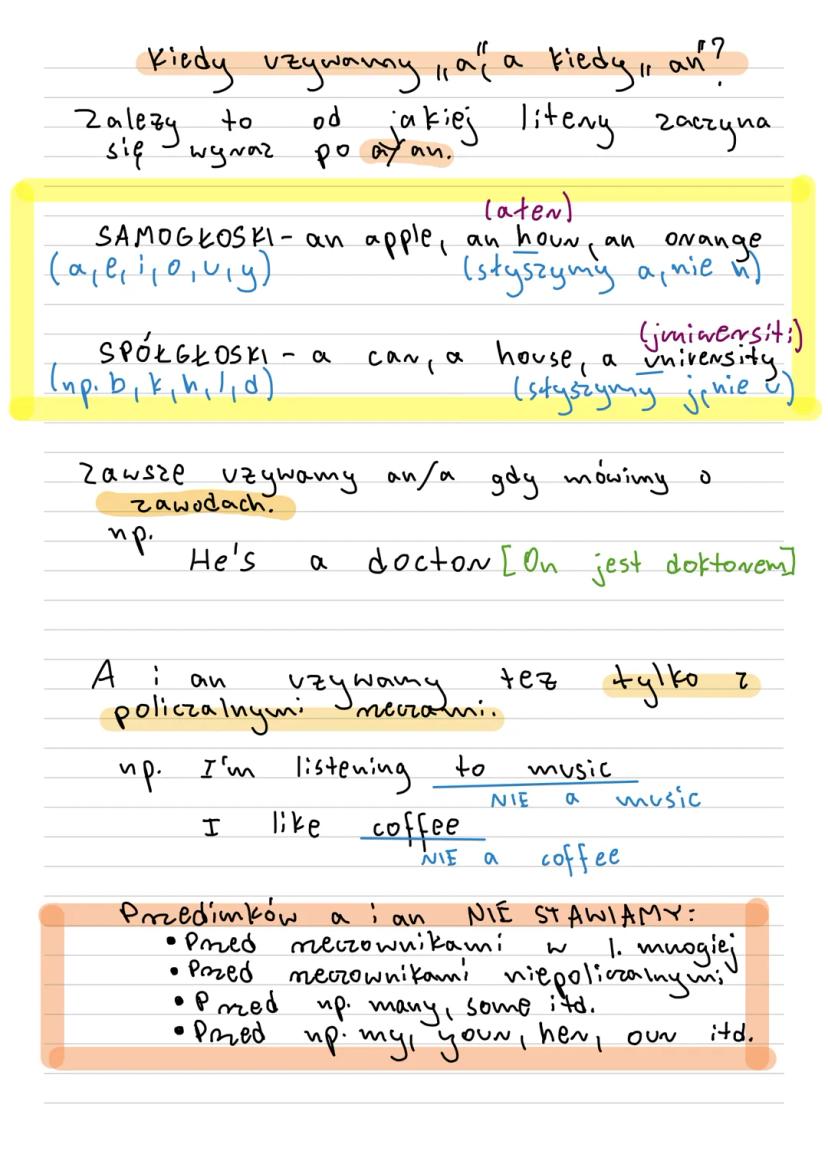 Kiedy używamy „a", a kiedy „an"?
Zależy to od jakiej litery zaczyna
się wyraz po a/an.
(ałer)
SAMOGŁOSKI - an apple, an hour, an orange
(a, e, i, o, u, y) (słyszymy a, nie h)
(juniwersiti)
SPÓŁGŁOSKI - a car, a house, a university
(np. b, k, h, l, d) (słyszymy j, nie u)
Zawsze używamy an/a gdy mówimy o
zawodach.
np.
He's a doctor [On jest doktorem]
A i an używamy też tylko z
policzalnymi rzeczami.
np. I'm listening to music
NIE a music
I like coffee
NIE a coffee
Przedimków a i an NIE STAWIAMY:
• Przed rzeczownikami w l. mnogiej
• Przed rzeczownikami niepoliczalnymi
• Przed np. many, some itd.
• Przed np. my, your, her, our itd.